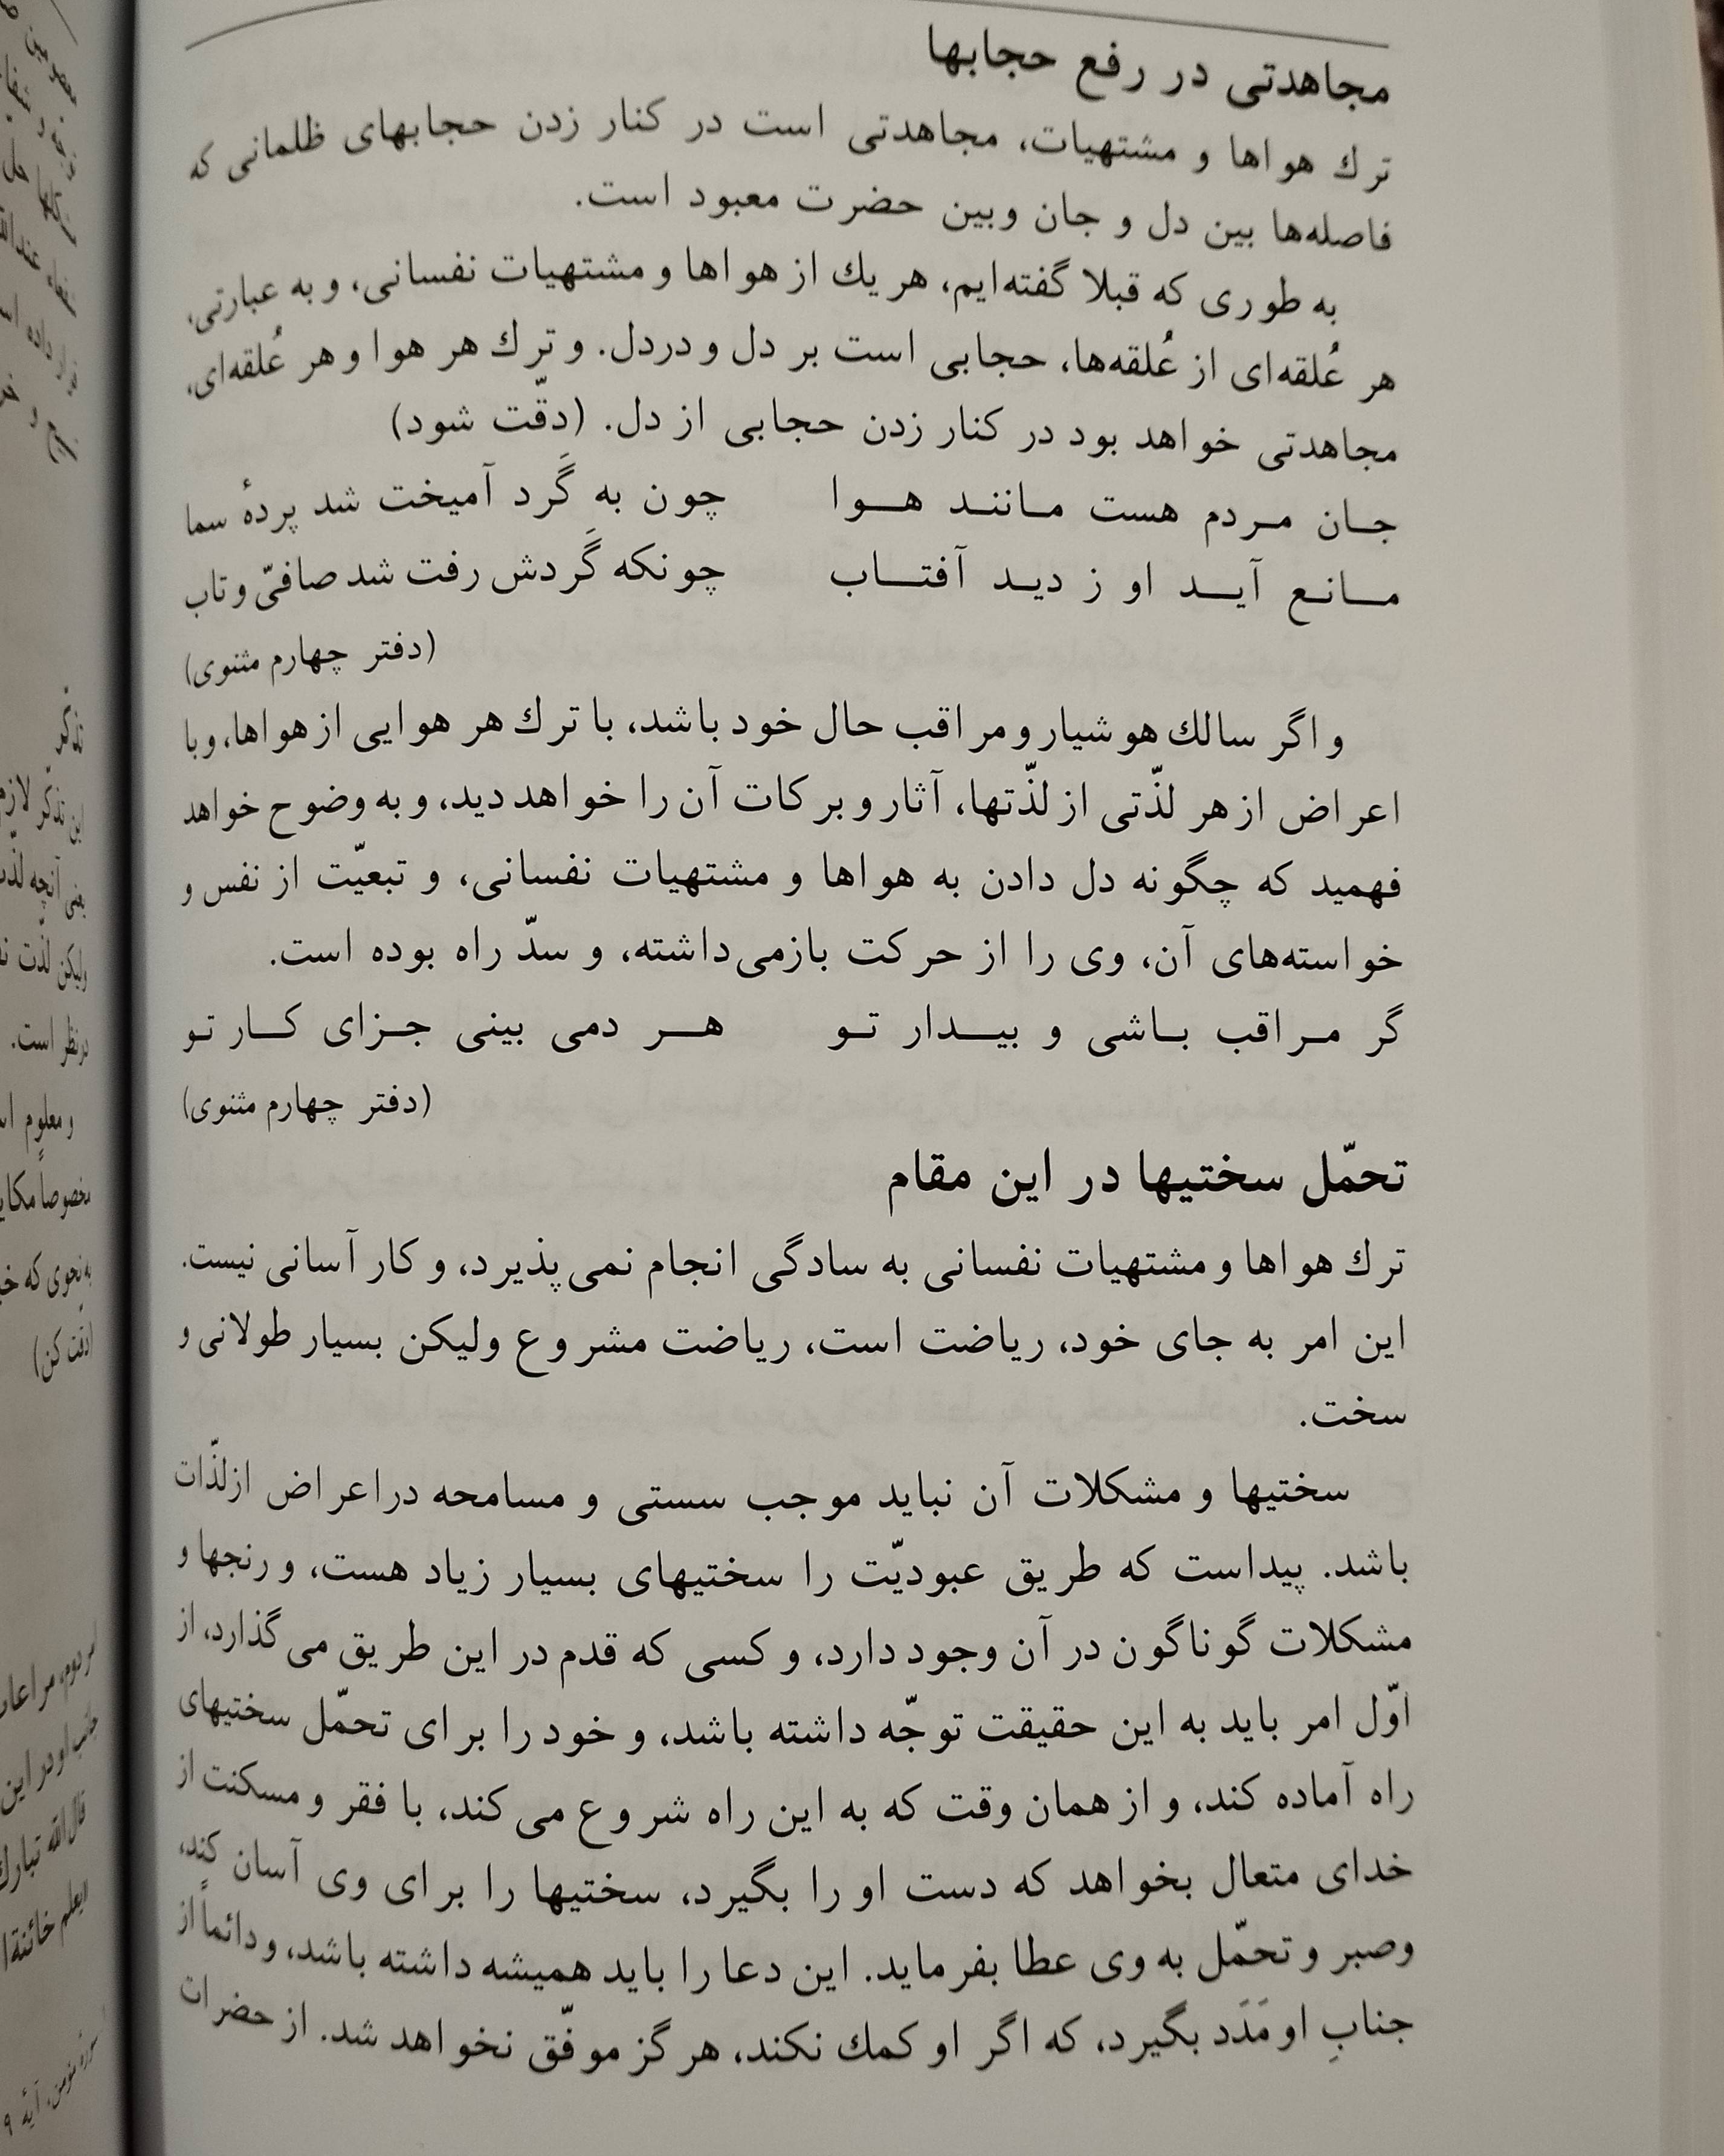 مجاهدتی در رفع حجابها
ترك هواها و مشتهیات، مجاهدتی است در کنار زدن حجابهای ظلمانی که
فاصله‌ها بین دل و جان وبین حضرت معبود است.
به طوری که قبلا گفته‌ایم، هر یك از هواها و مشتهیات نفسانی، و به عبارتی،
هر عُلقه‌ای از عُلقه‌ها، حجابی است بر دل و دردل. و ترك هر هوا و هر عُلقه‌ای،
مجاهدتی خواهد بود در کنار زدن حجابی از دل. (دقّت شود)
جـان مـردم هست مـانـنـد هـــوا چون به گَرد آمیخت شد پردهٔ سما
مـــانـع آیـــد او ز دیـد آفتـــاب چونکه گَردش رفت شد صافیّ و تاب
(دفتر چهارم مثنوی)
و اگر سالك هوشیار و مراقب حال خود باشد، با ترك هر هوایی از هواها، و با
اعراض از هر لذّتی از لذّتها، آثار و برکات آن را خواهد دید، و به وضوح خواهد
فهمید که چگونه دل دادن به هواها و مشتهیات نفسانی، و تبعیّت از نفس و
خواسته‌های آن، وی را از حرکت بازمی‌داشته، و سدّ راه بوده است.
گر مـراقب بـاشی و بیـــدار تـو هـــر دمی بینی جـزای کـــار تـو
(دفتر چهارم مثنوی)
تحمّل سختیها در این مقام
ترك هواها و مشتهیات نفسانی به سادگی انجام نمی‌پذیرد، و کار آسانی نیست.
این امر به جای خود، ریاضت است، ریاضت مشروع ولیکن بسیار طولانی و
سخت.
سختیها و مشکلات آن نباید موجب سستی و مسامحه دراعراض ازلذّات
باشد. پیداست که طریق عبودیّت را سختیهای بسیار زیاد هست، و رنجها و
مشکلات گوناگون در آن وجود دارد، و کسی که قدم در این طریق می‌گذارد، از
اوّل امر باید به این حقیقت توجّه داشته باشد، و خود را برای تحمّل سختیهای
راه آماده کند، و از همان وقت که به این راه شروع می‌کند، با فقر و مسکنت از
خدای متعال بخواهد که دست او را بگیرد، سختیها را برای وی آسان کند،
وصبر و تحمّل به وی عطا بفرماید. این دعا را باید همیشه داشته باشد، و دائماً از
جنابِ او مَدَد بگیرد، که اگر او کمك نکند، هرگز موفّق نخواهد شد. از حضرات
تذکّر
این تذکّر
ولیکن لذّت
درنظر است.
و معلوم
مخصوصاً
به نحوی که
(دقّت کن)
قال الله تبارك